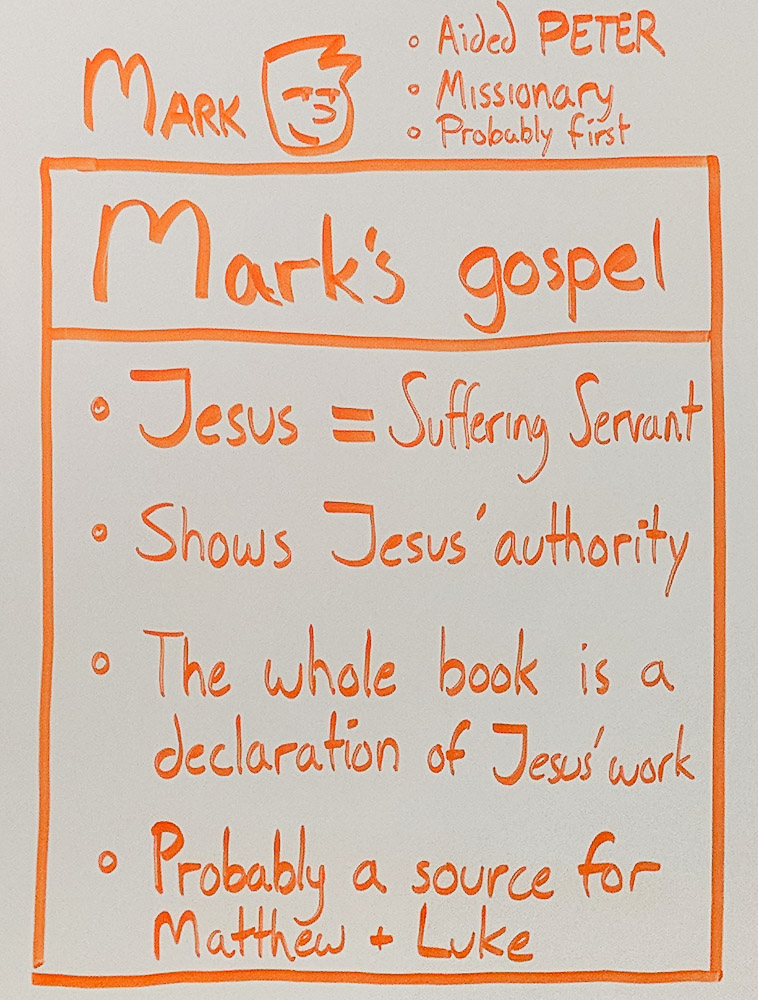 Mark
• Aided PETER
• Missionary
• Probably first
Mark's gospel
• Jesus = Suffering Servant
• Shows Jesus' authority
• The whole book is a
declaration of Jesus' work
• Probably a source for
Matthew + Luke